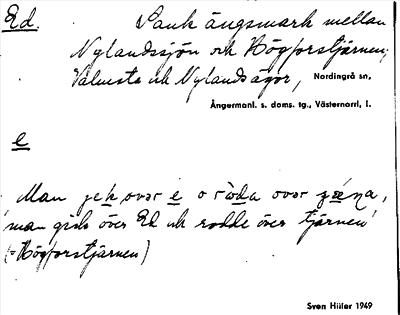 Ed. Sank ängsmark mellan
Nylandssjön och Högforstjärnen,
Valmsta och Nylands ägor, Nordingrå sn,
Ångermanl. s. doms. tg., Västernorrl. l.
e
Man jek over e o ròda over
'man gick över Ed och rodde över tjärnen'
(= Högforstjärnen)
Sven Hiller 1949